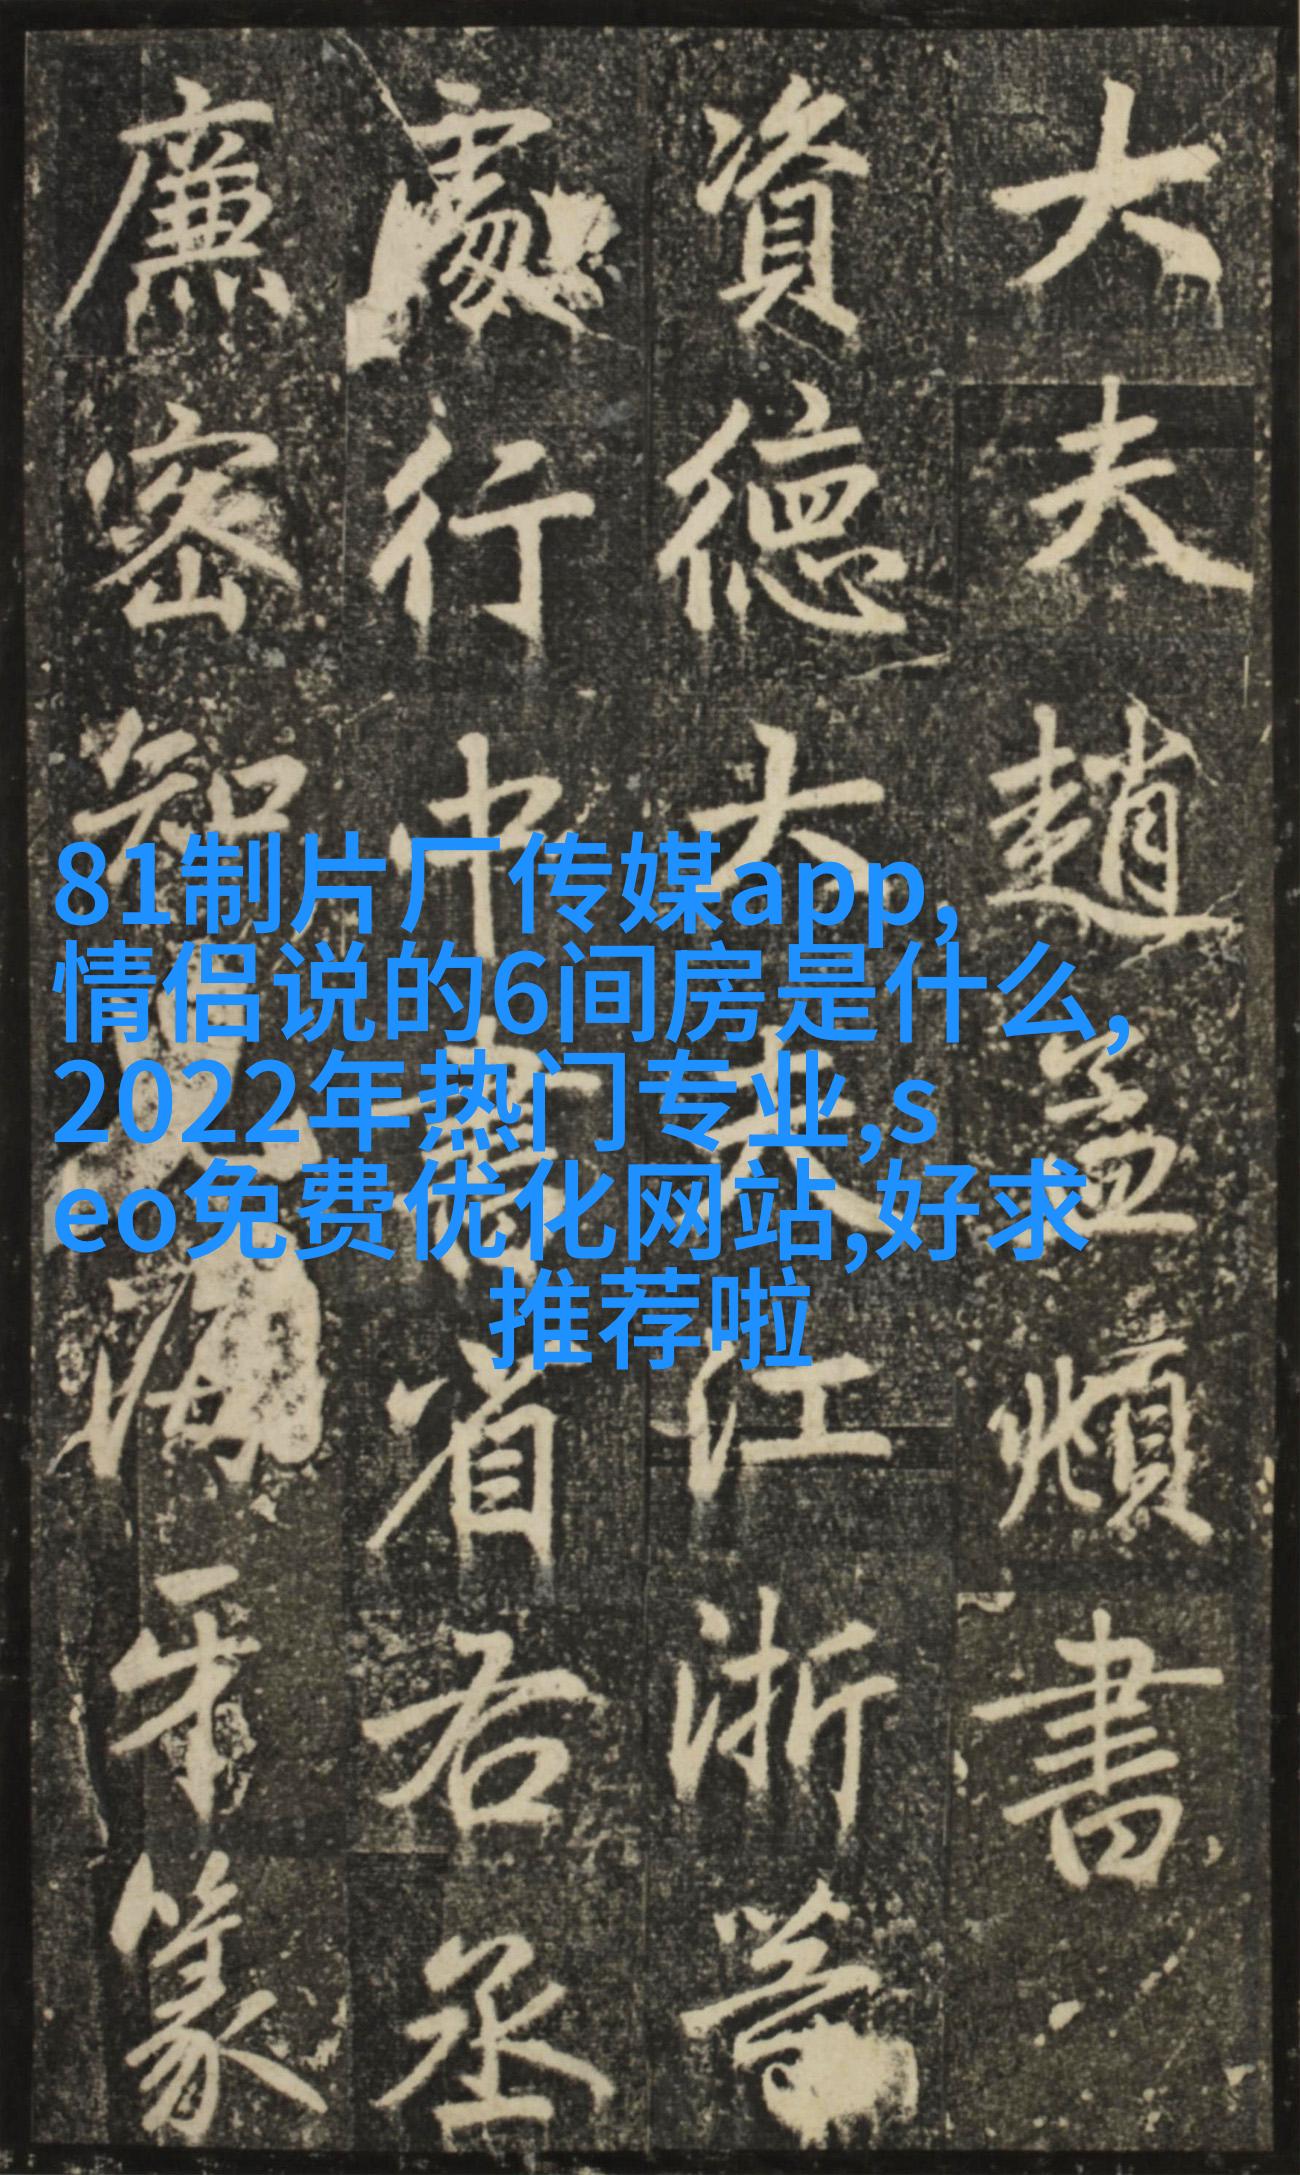 大夫趙孟頫書
資德大夫江浙等
處行中書省右丞
廉密知兒海牙篆
81制片厂传媒app,
情侣说的6间房是什么,
2022年热门专业,s
eo免费优化网站,好求
推荐啦